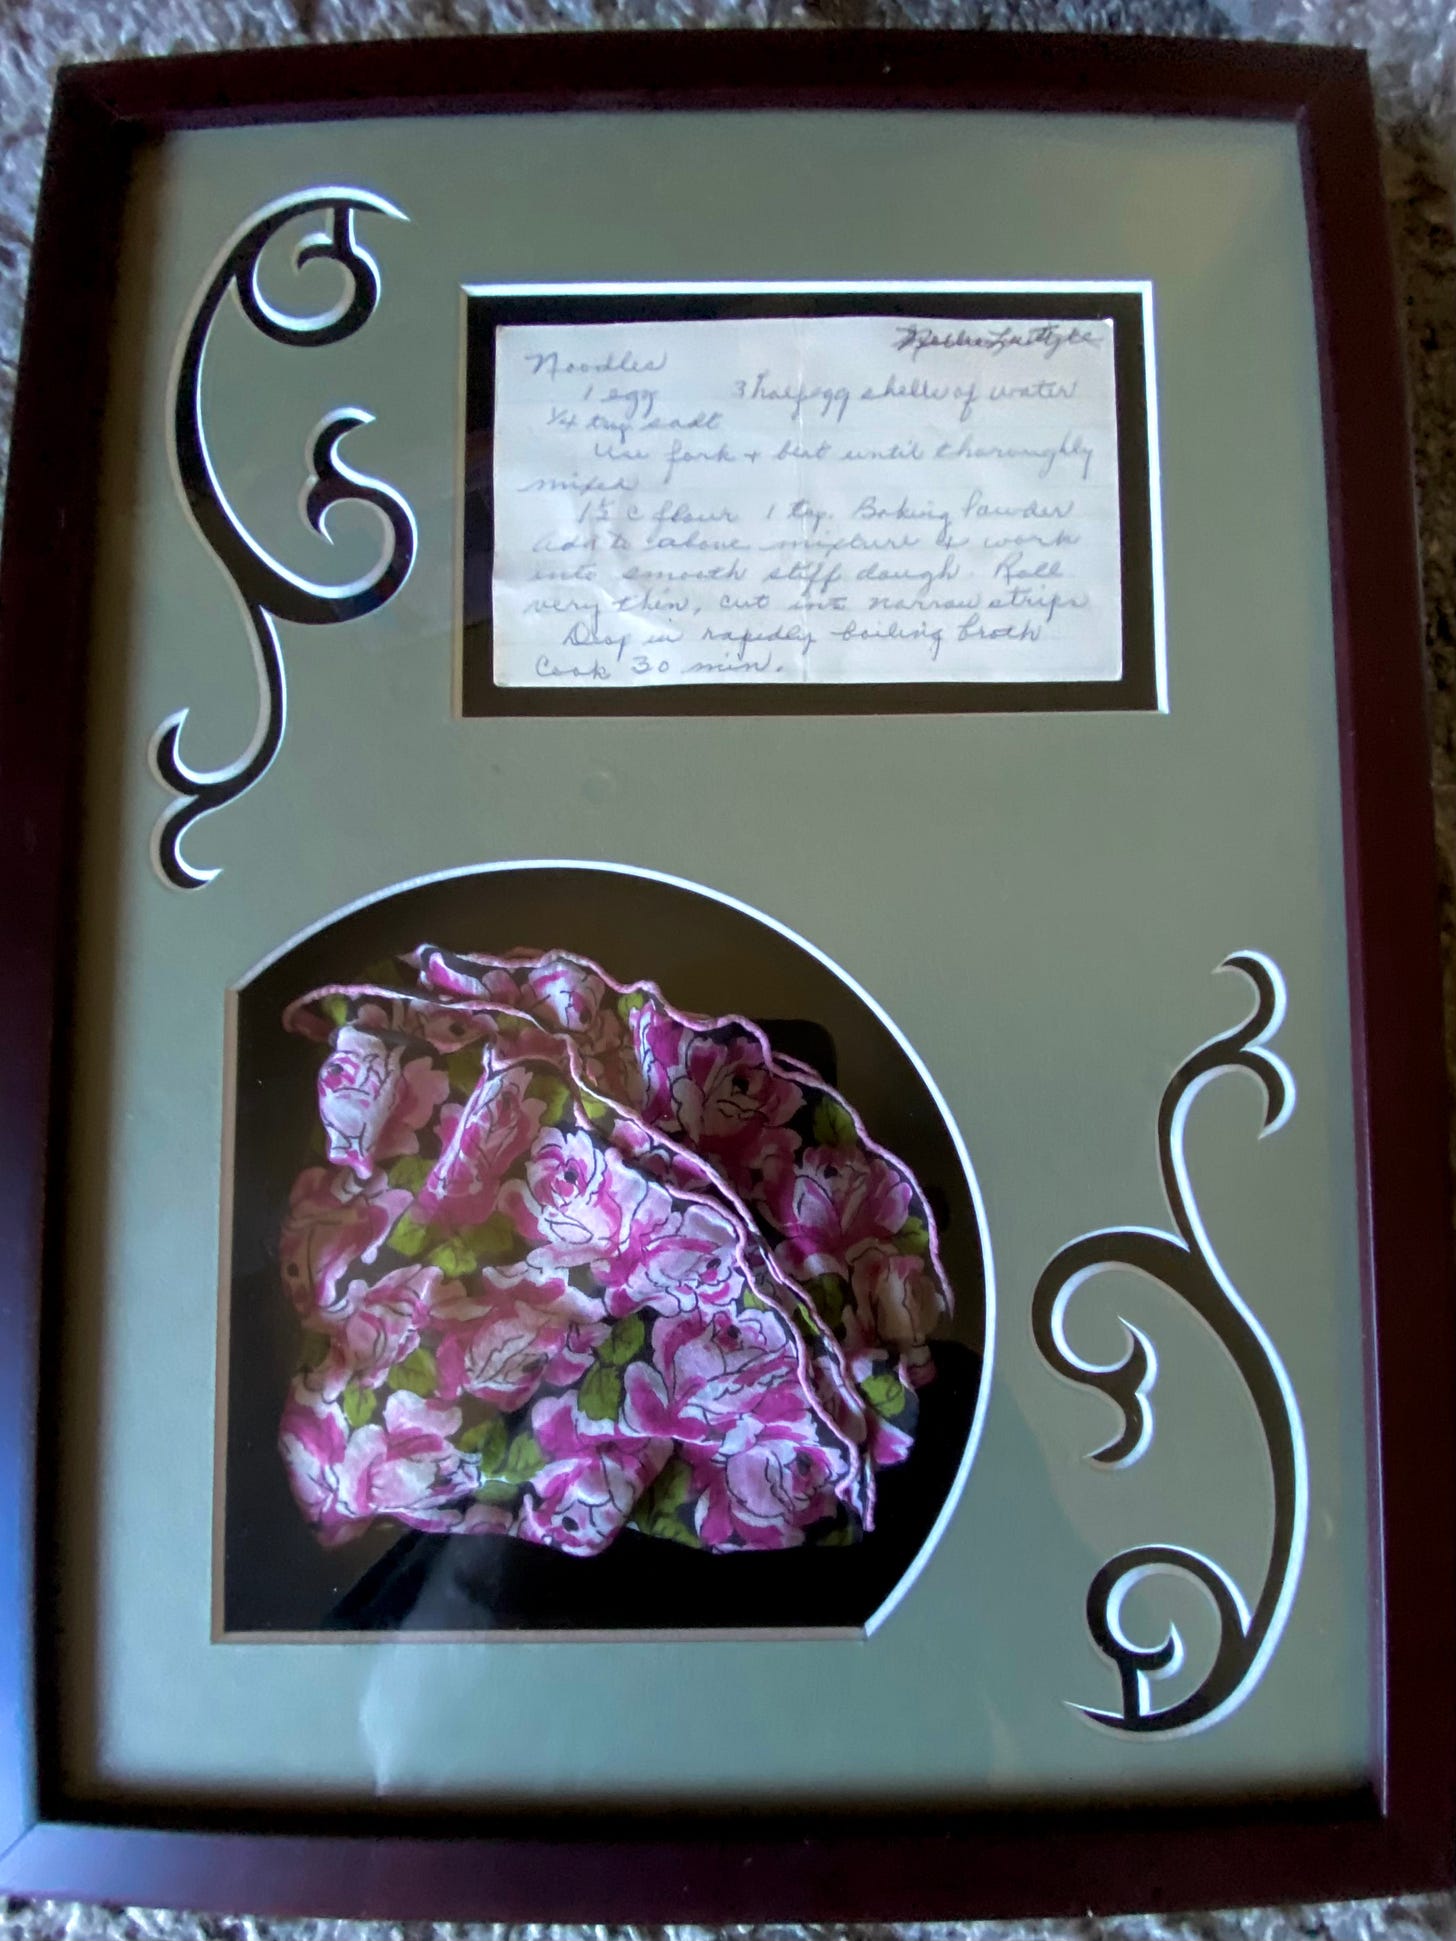 Noodles
1 egg 3 half egg shells of water
1/4 tsp salt
Use fork + beat until thoroughly
mixed
1½ c flour 1 tsp. Baking Powder
add to above mixture & work
into smooth stiff dough. Roll
very thin, cut into narrow strips
Drop in rapidly boiling broth
Cook 30 min.